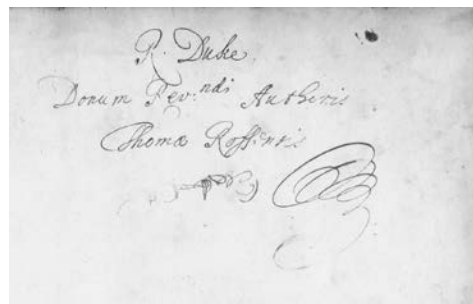 R. Duke
Donum Rev:ndi Authoris
Thomæ Roffensis